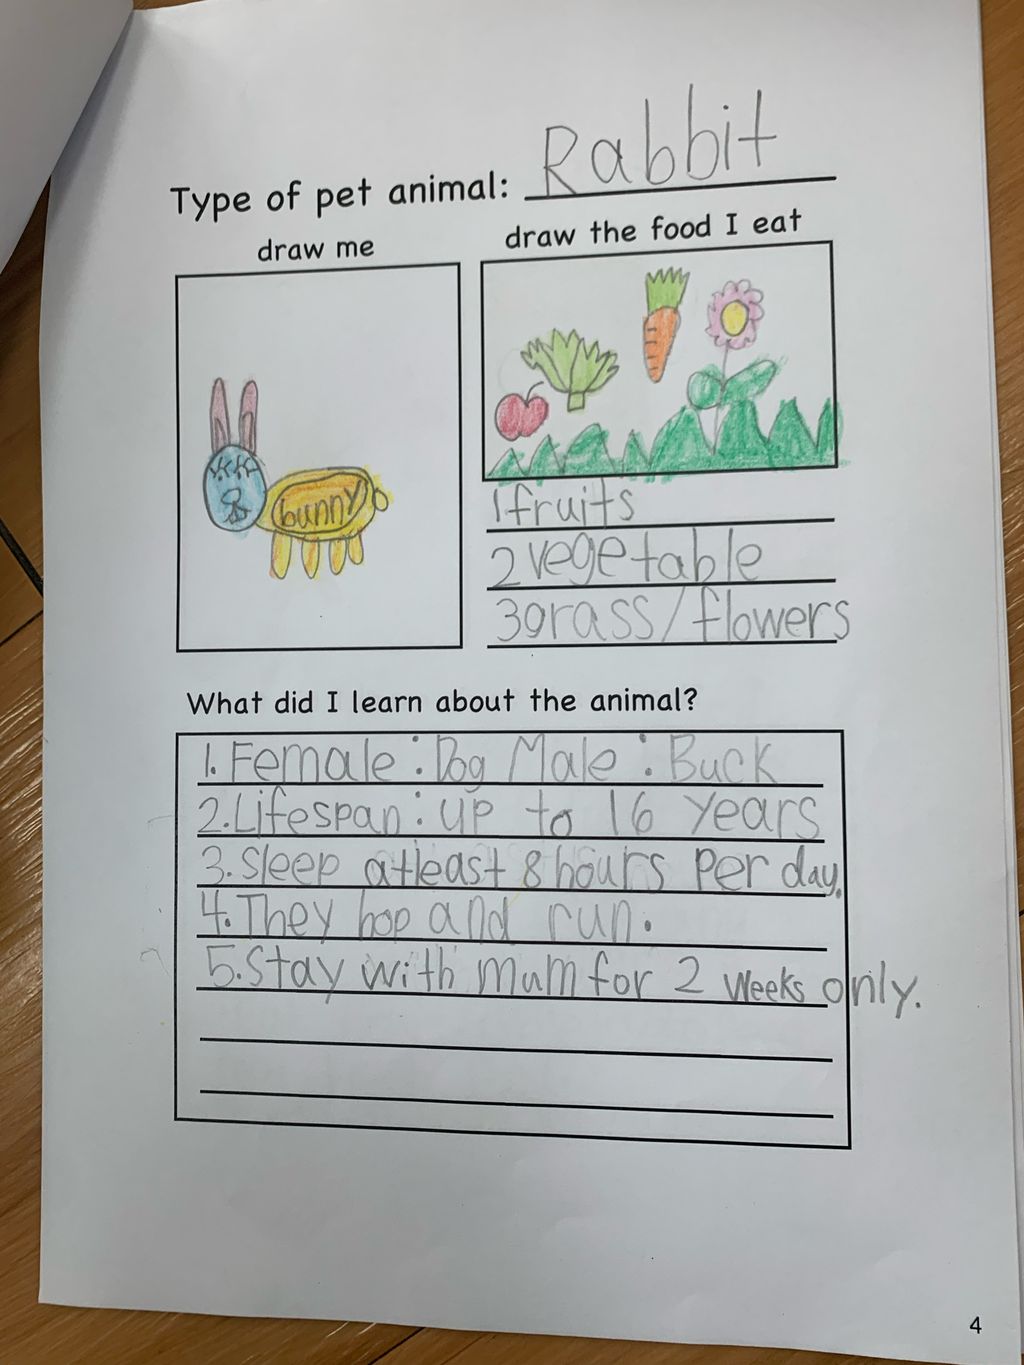 Type of pet animal: Rabbit
draw me
draw the food I eat
bunny
1 fruits
2 vegetable
3 grass/flowers
What did I learn about the animal?
1. Female : Dog Male : Buck
2. Lifespan : up to 16 years
3. Sleep atleast 8 hours per day.
4. They hop and run.
5. Stay with mum for 2 weeks only.
4